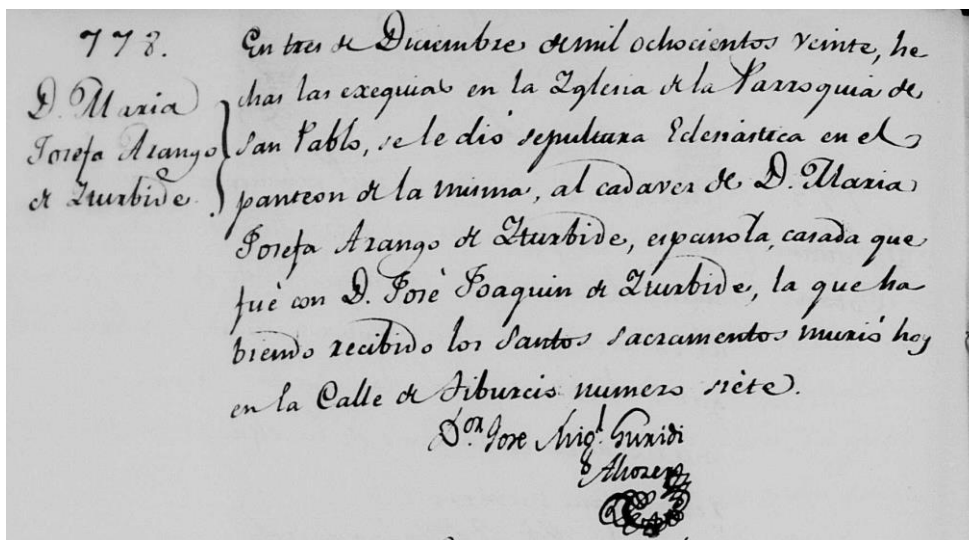 778.
D. Maria
Josefa Arango
de Iturbide.
En tres de Diciembre de mil ochocientos veinte, he
chas las exequias en la Iglesia de la Parroquia de
San Pablo, se le dió sepultura Eclesiástica en el
panteon de la misma, al cadaver de D. Maria
Josefa Arango de Iturbide, española, casada que
fué con D. José Joaquin de Iturbide, la que ha
biendo recibido los Santos Sacramentos murió hoy
en la Calle de Tiburcio numero siete.
D.or Jose Mig.l Guridi
y Alcozer